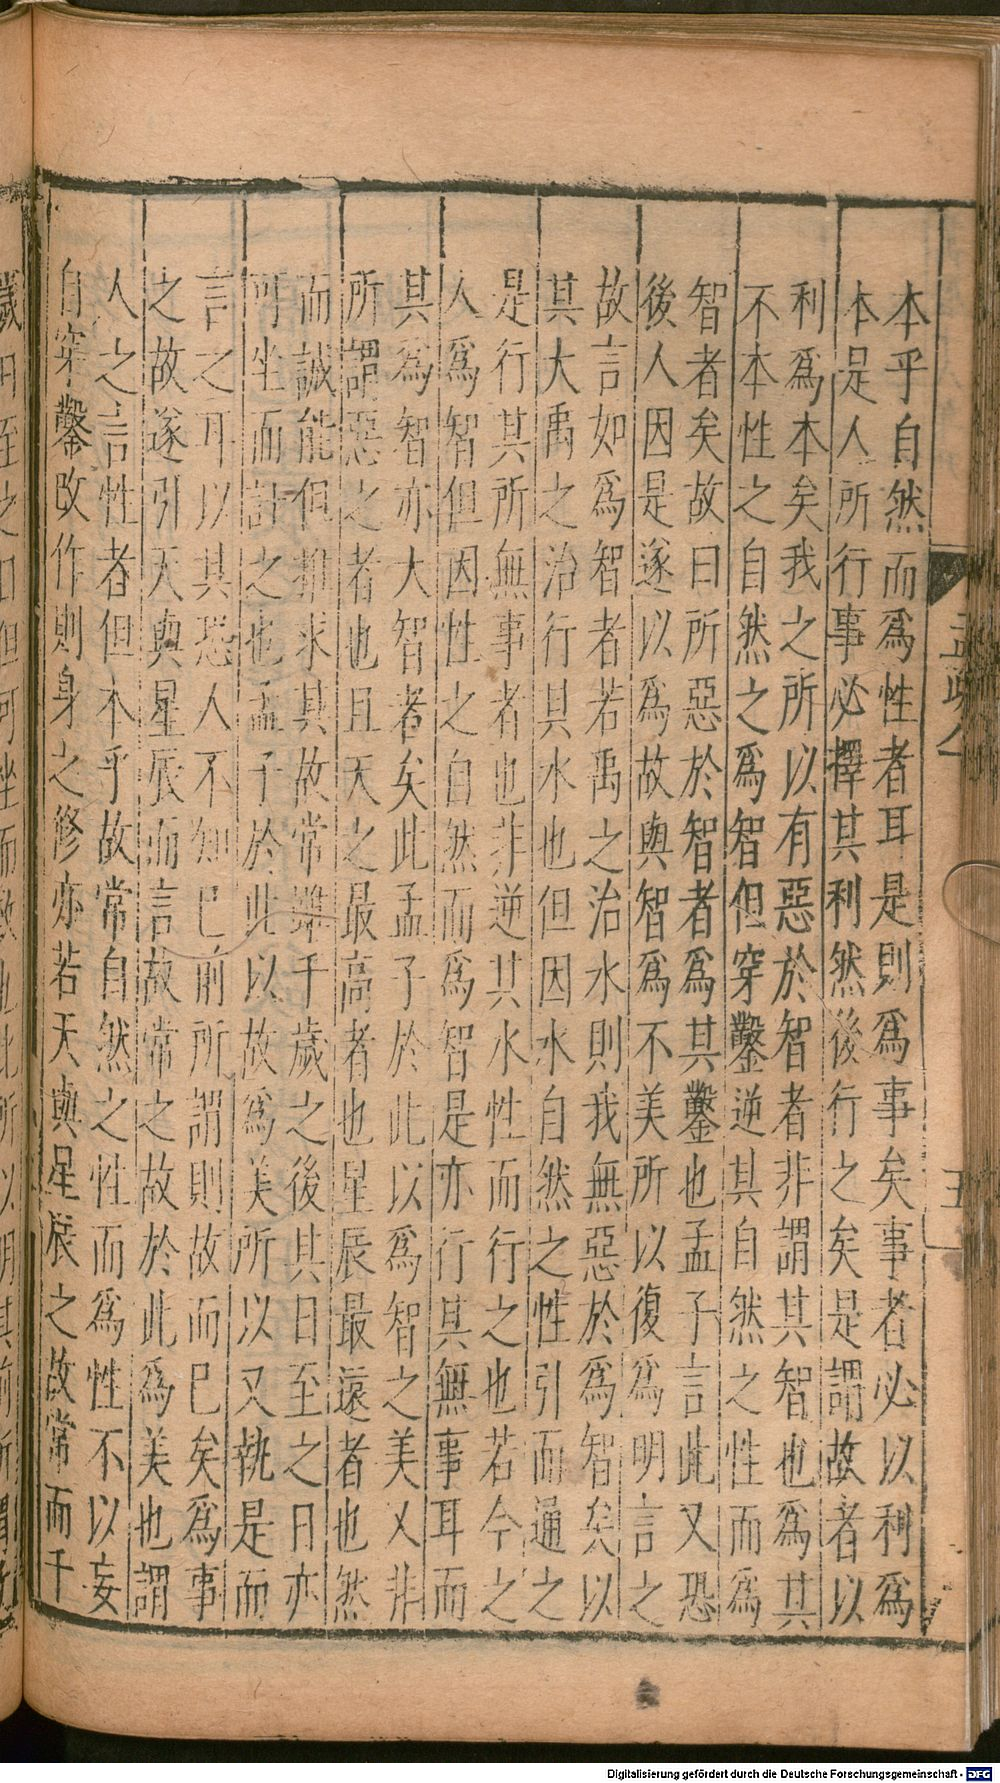 本乎自然而爲性者耳是則爲事矣事者必以利爲
本是人所行事必擇其利然後行之矣是謂故者以
利爲本矣我之所以有惡於智者非謂其智也爲其
不本性之自然之爲智但穿鑿逆其自然之性而爲
智者矣故曰所惡於智者爲其鑿也孟子言此又恐
後人因是遂以爲故與智爲不美所以復爲明言之
故言如爲智者若禹之治水則我無惡於爲智矣以
其大禹之治行其水也但因水自然之性引而通之
是行其所無事者也非逆其水性而行之也若今之
人爲智但因性之自然而爲智是亦行其無事耳而
其爲智亦大智者矣此孟子於此以爲智之美又非
所謂惡之者也且天之最高者也星辰最遠者也然
而誠能但推求其故常雖千歲之後其日至之日亦
可坐而計之也孟子於此以故爲美所以又執是而
言之耳以其恐人不知已前所謂則故而已矣爲事
之故遂引天與星辰而言故常之故於此爲美也謂
人之言性者但本乎故常自然之性而爲性不以妄
自穿鑿改作則身之修亦若天與星辰之故常而千
歲日至之日但可坐而致也此所以明其前所謂
孟疏八
五
Digitalisierung gefördert durch die Deutsche Forschungsgemeinschaft - DFG